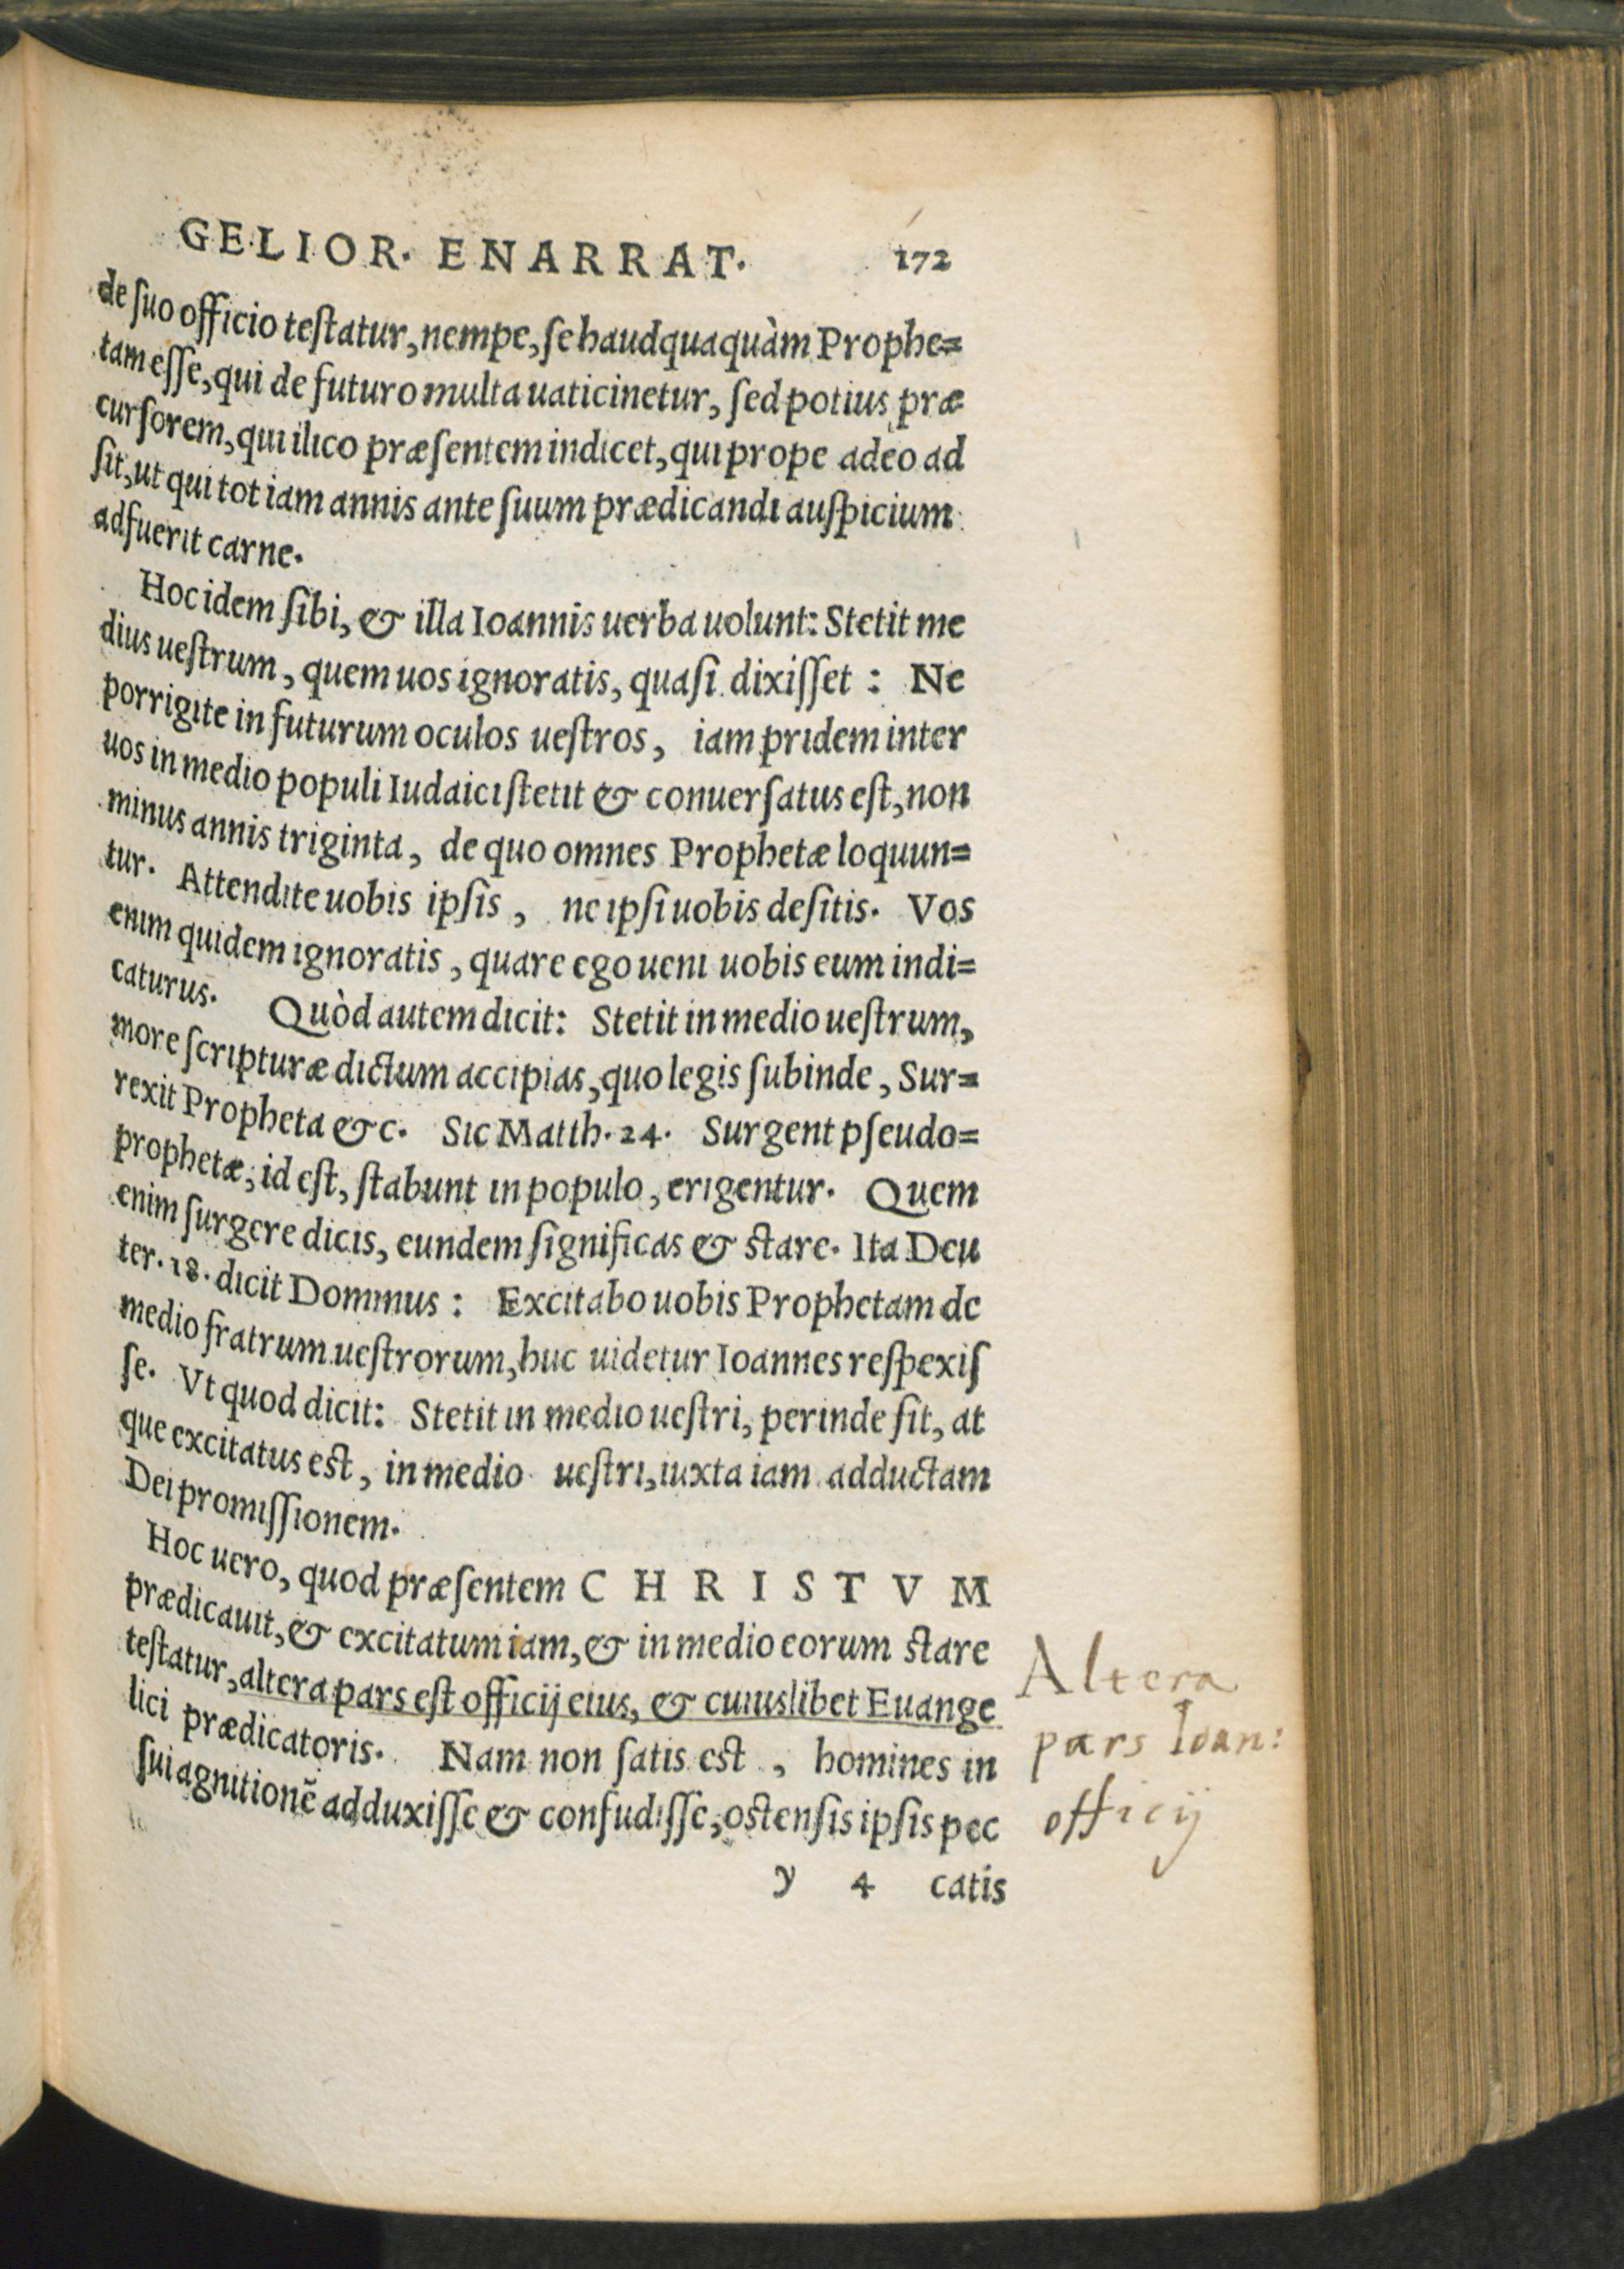 GELIOR. ENARRAT. 172
de ſuo officio teſtatur, nempe, ſe haudquaquàm Prophe=
tam eſſe, qui de futuro multa uaticinetur, ſed potius præ
curſorem, qui ilico præſentem indicet, qui prope adeo ad
ſit, ut qui tot iam annis ante ſuum prædicandi auſpicium
adfuerit carne.
Hoc idem ſibi, & illa Ioannis uerba uolunt: Stetit me
dius ueſtrum, quem uos ignoratis, quaſi dixiſſet: Ne
porrigite in futurum oculos ueſtros, iam pridem inter
uos in medio populi Iudaici ſtetit & conuerſatus eſt, non
minus annis triginta, de quo omnes Prophetæ loquun=
tur. Attendite uobis ipſis, ne ipſi uobis deſitis. Vos
enim quidem ignoratis, quare ego ueni uobis eum indi=
caturus. Quòd autem dicit: Stetit in medio ueſtrum,
more ſcripturæ dictum accipias, quo legis ſubinde, Sur=
rexit Propheta &c. Sic Matth. 24. Surgent pſeudo=
prophetæ, id eſt, ſtabunt in populo, erigentur. Quem
enim ſurgere dicis, eundem ſignificas & ſtare. Ita Deu
ter. 18. dicit Dominus: Excitabo uobis Prophetam de
medio fratrum ueſtrorum, huc uidetur Ioannes reſpexiſ
ſe. Vt quod dicit: Stetit in medio ueſtri, perinde ſit, at
que excitatus eſt, in medio ueſtri, iuxta iam adductam
Dei promiſſionem.
Hoc uero, quod præſentem CHRISTVM
prædicauit, & excitatum iam, & in medio eorum ſtare
teſtatur, altera pars eſt officij eius, & cuiuslibet Euange
lici prædicatoris. Nam non ſatis eſt, homines in
ſui agnitionẽ adduxiſſe & confudiſſe, oſtenſis ipſis pec
y 4 catis
Altera
pars Ioan:
officij